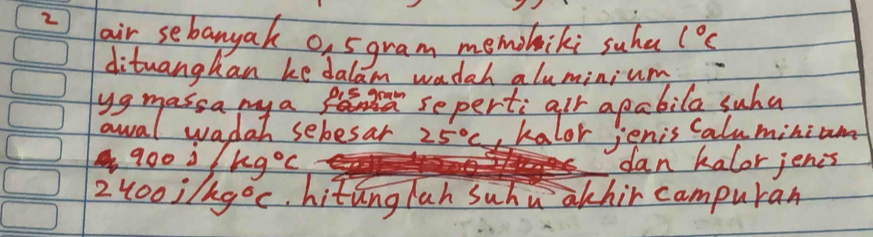 2 air sebanyak 0,5 gram memiliki suhu 1°C
dituangkan ke dalam wadah aluminium
yg massa nya 0,5 gram seperti air apabila suhu
awal wadah sebesar 25°C, kalor jenis aluminium
900 j/kg°C dan kalor jenis
2400 j/kg°C. hitunglah suhu akhir campuran